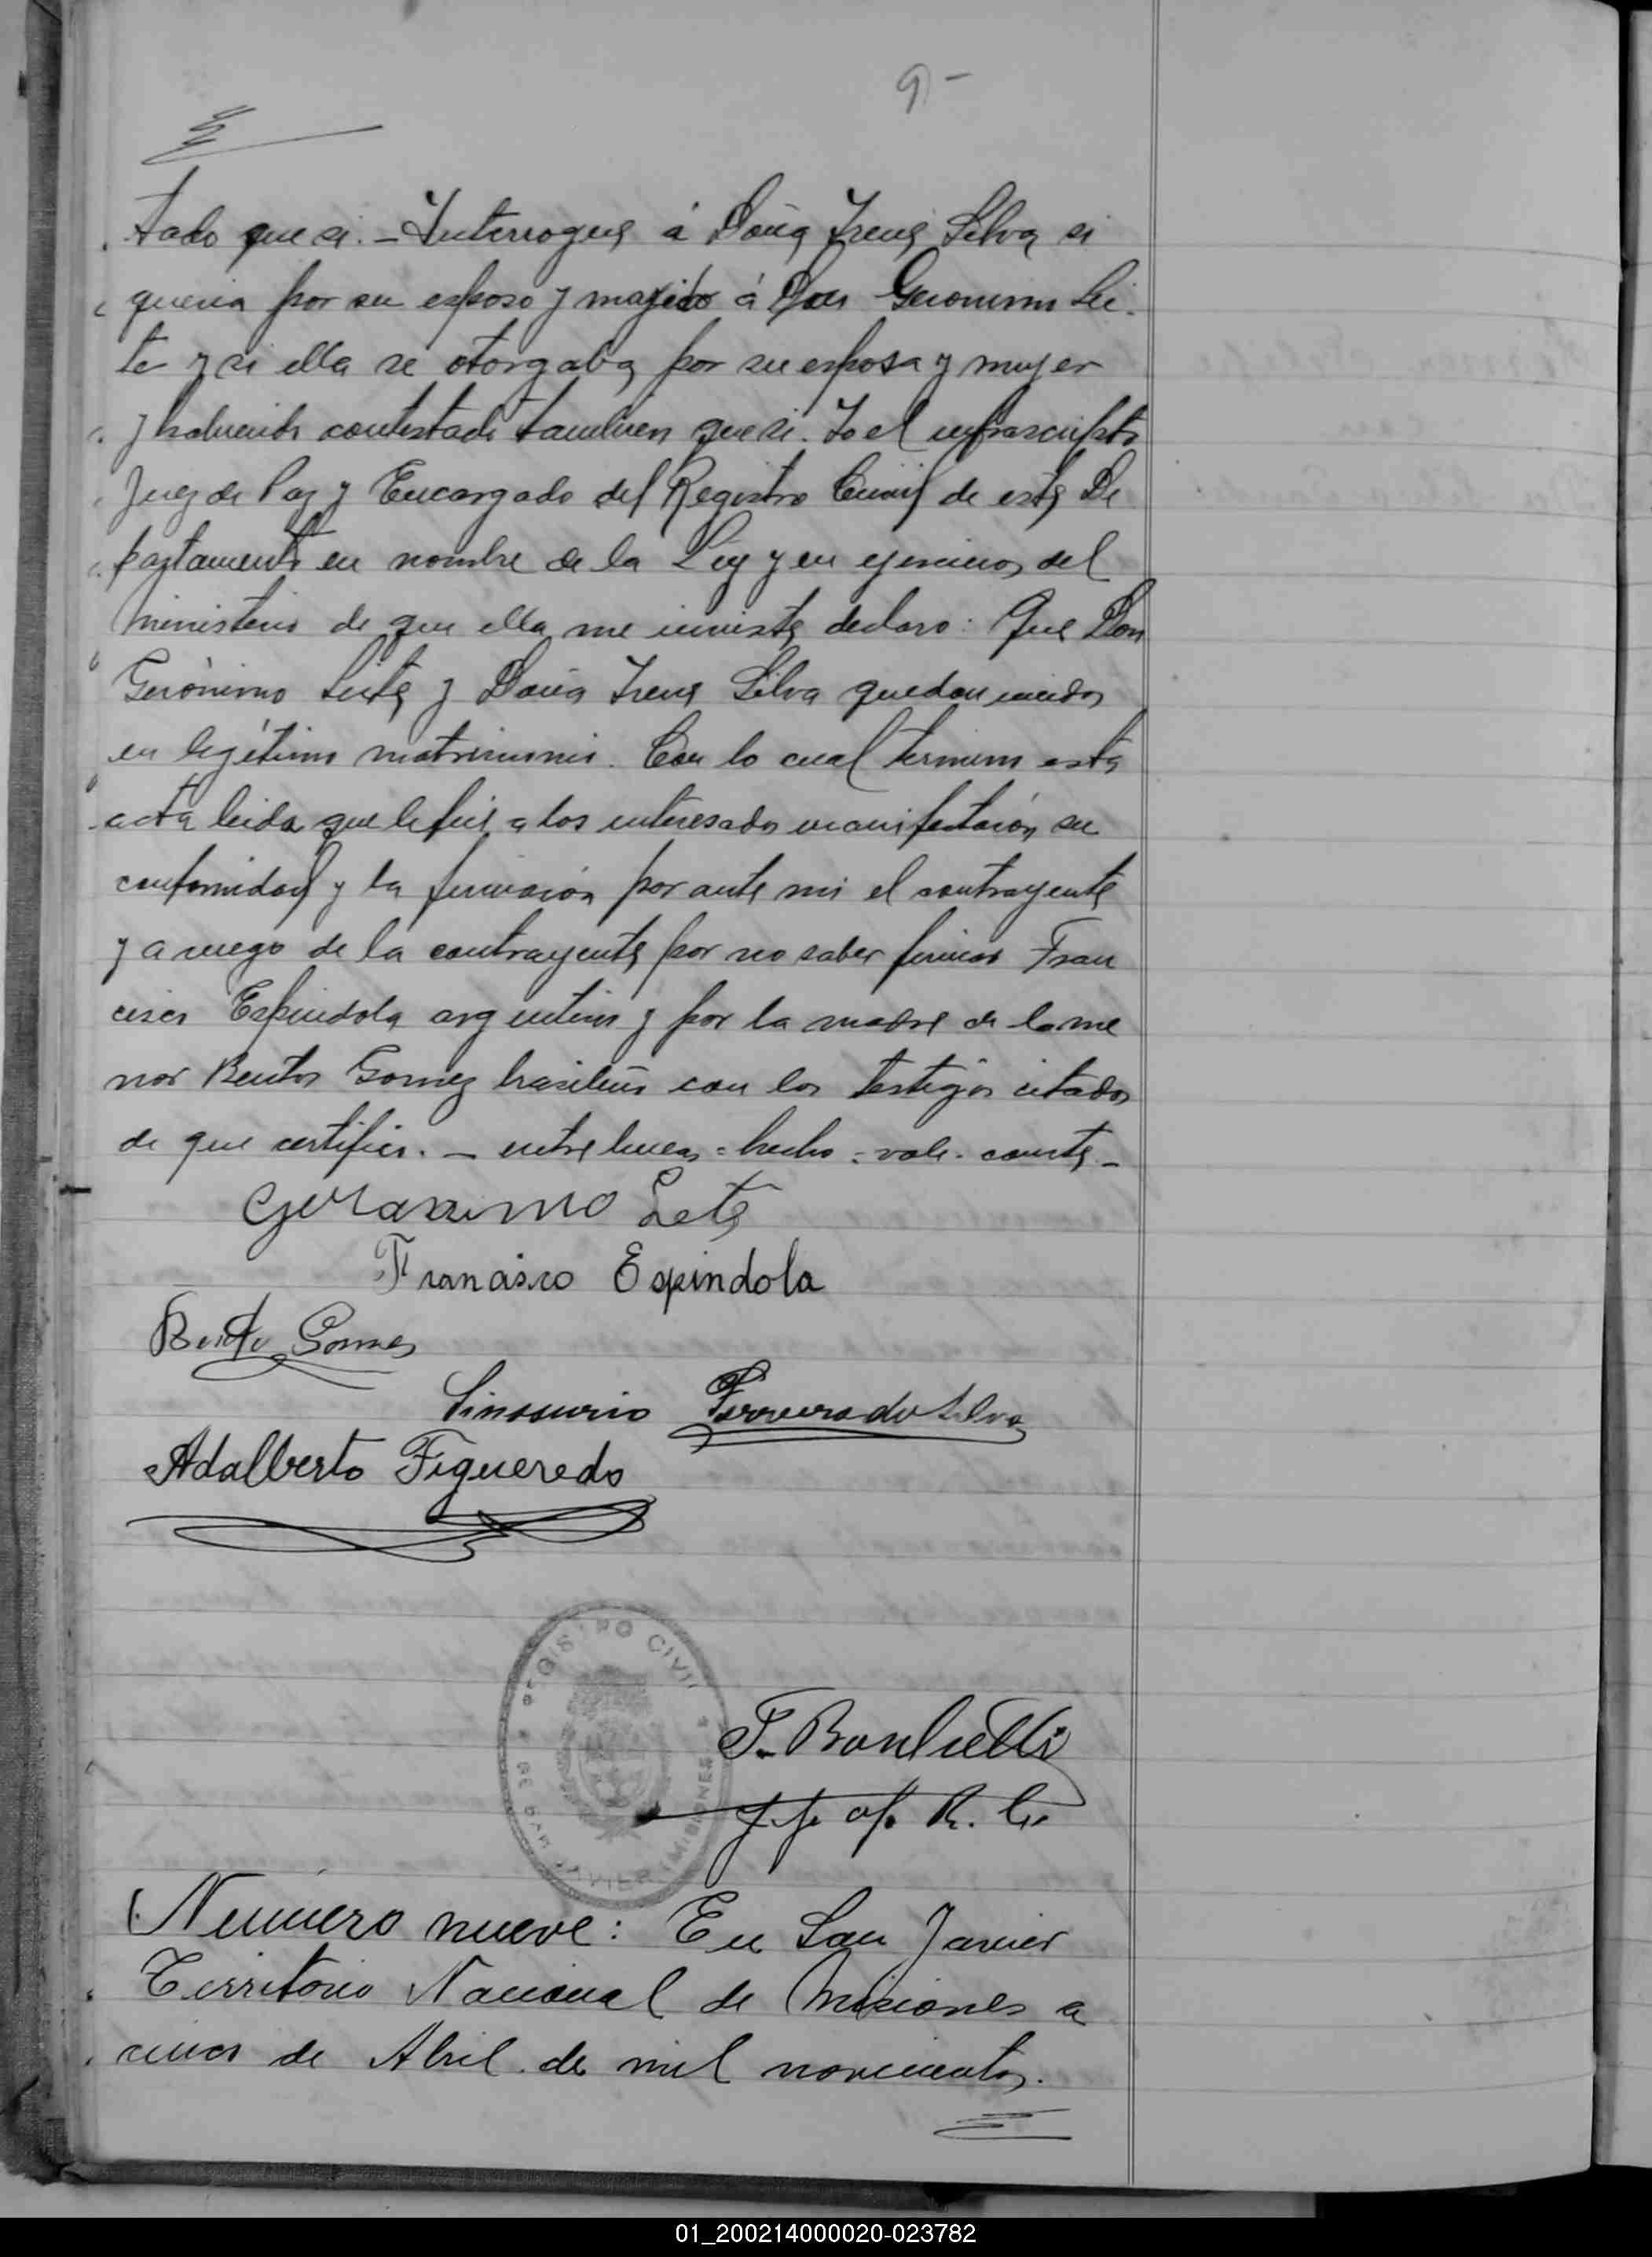 9-
tado que si. - Interrogué á Doña Irene Silva si
queria por su esposo y marido á Don Geronimo Lei-
te y si ella se otorgaba por su esposa y mujer
y habiendo contestado tambien que si. Yo el infrascripto
Juez de Paz y Encargado del Registro Civil de este De
partamento en nombre de la Ley y en ejercicio del
ministerio de que ella me inviste declaro: Que Don
Gerónimo Leite y Doña Irene Silva quedan unidos
en legítimo matrimonio. Con lo cual termino esta
acta leida que le fué a los interesados manifestarón su
conformidad y la firmarón por ante mi el contrayente
y a ruego de la contrayente por no saber firmar Fran
cisco Espindola argentino y por la madre de la me
nor Bento Gomez brasilero con los testigos citados
de que certifico. - entre lineas = hecho = vale. conste -
Geranimo Lete
Francisco Espindola
Bento Gomes
Ferreira da Silva
Adalberto Figueredo
REGISTRO CIVIL
DE SAN JAVIER (MISIONES)
J. P. E. del R. C.
Número nueve: En San Javier
Territorio Nacional de Misiones a
cinco de Abril de mil novecientos.
01_200214000020-023782